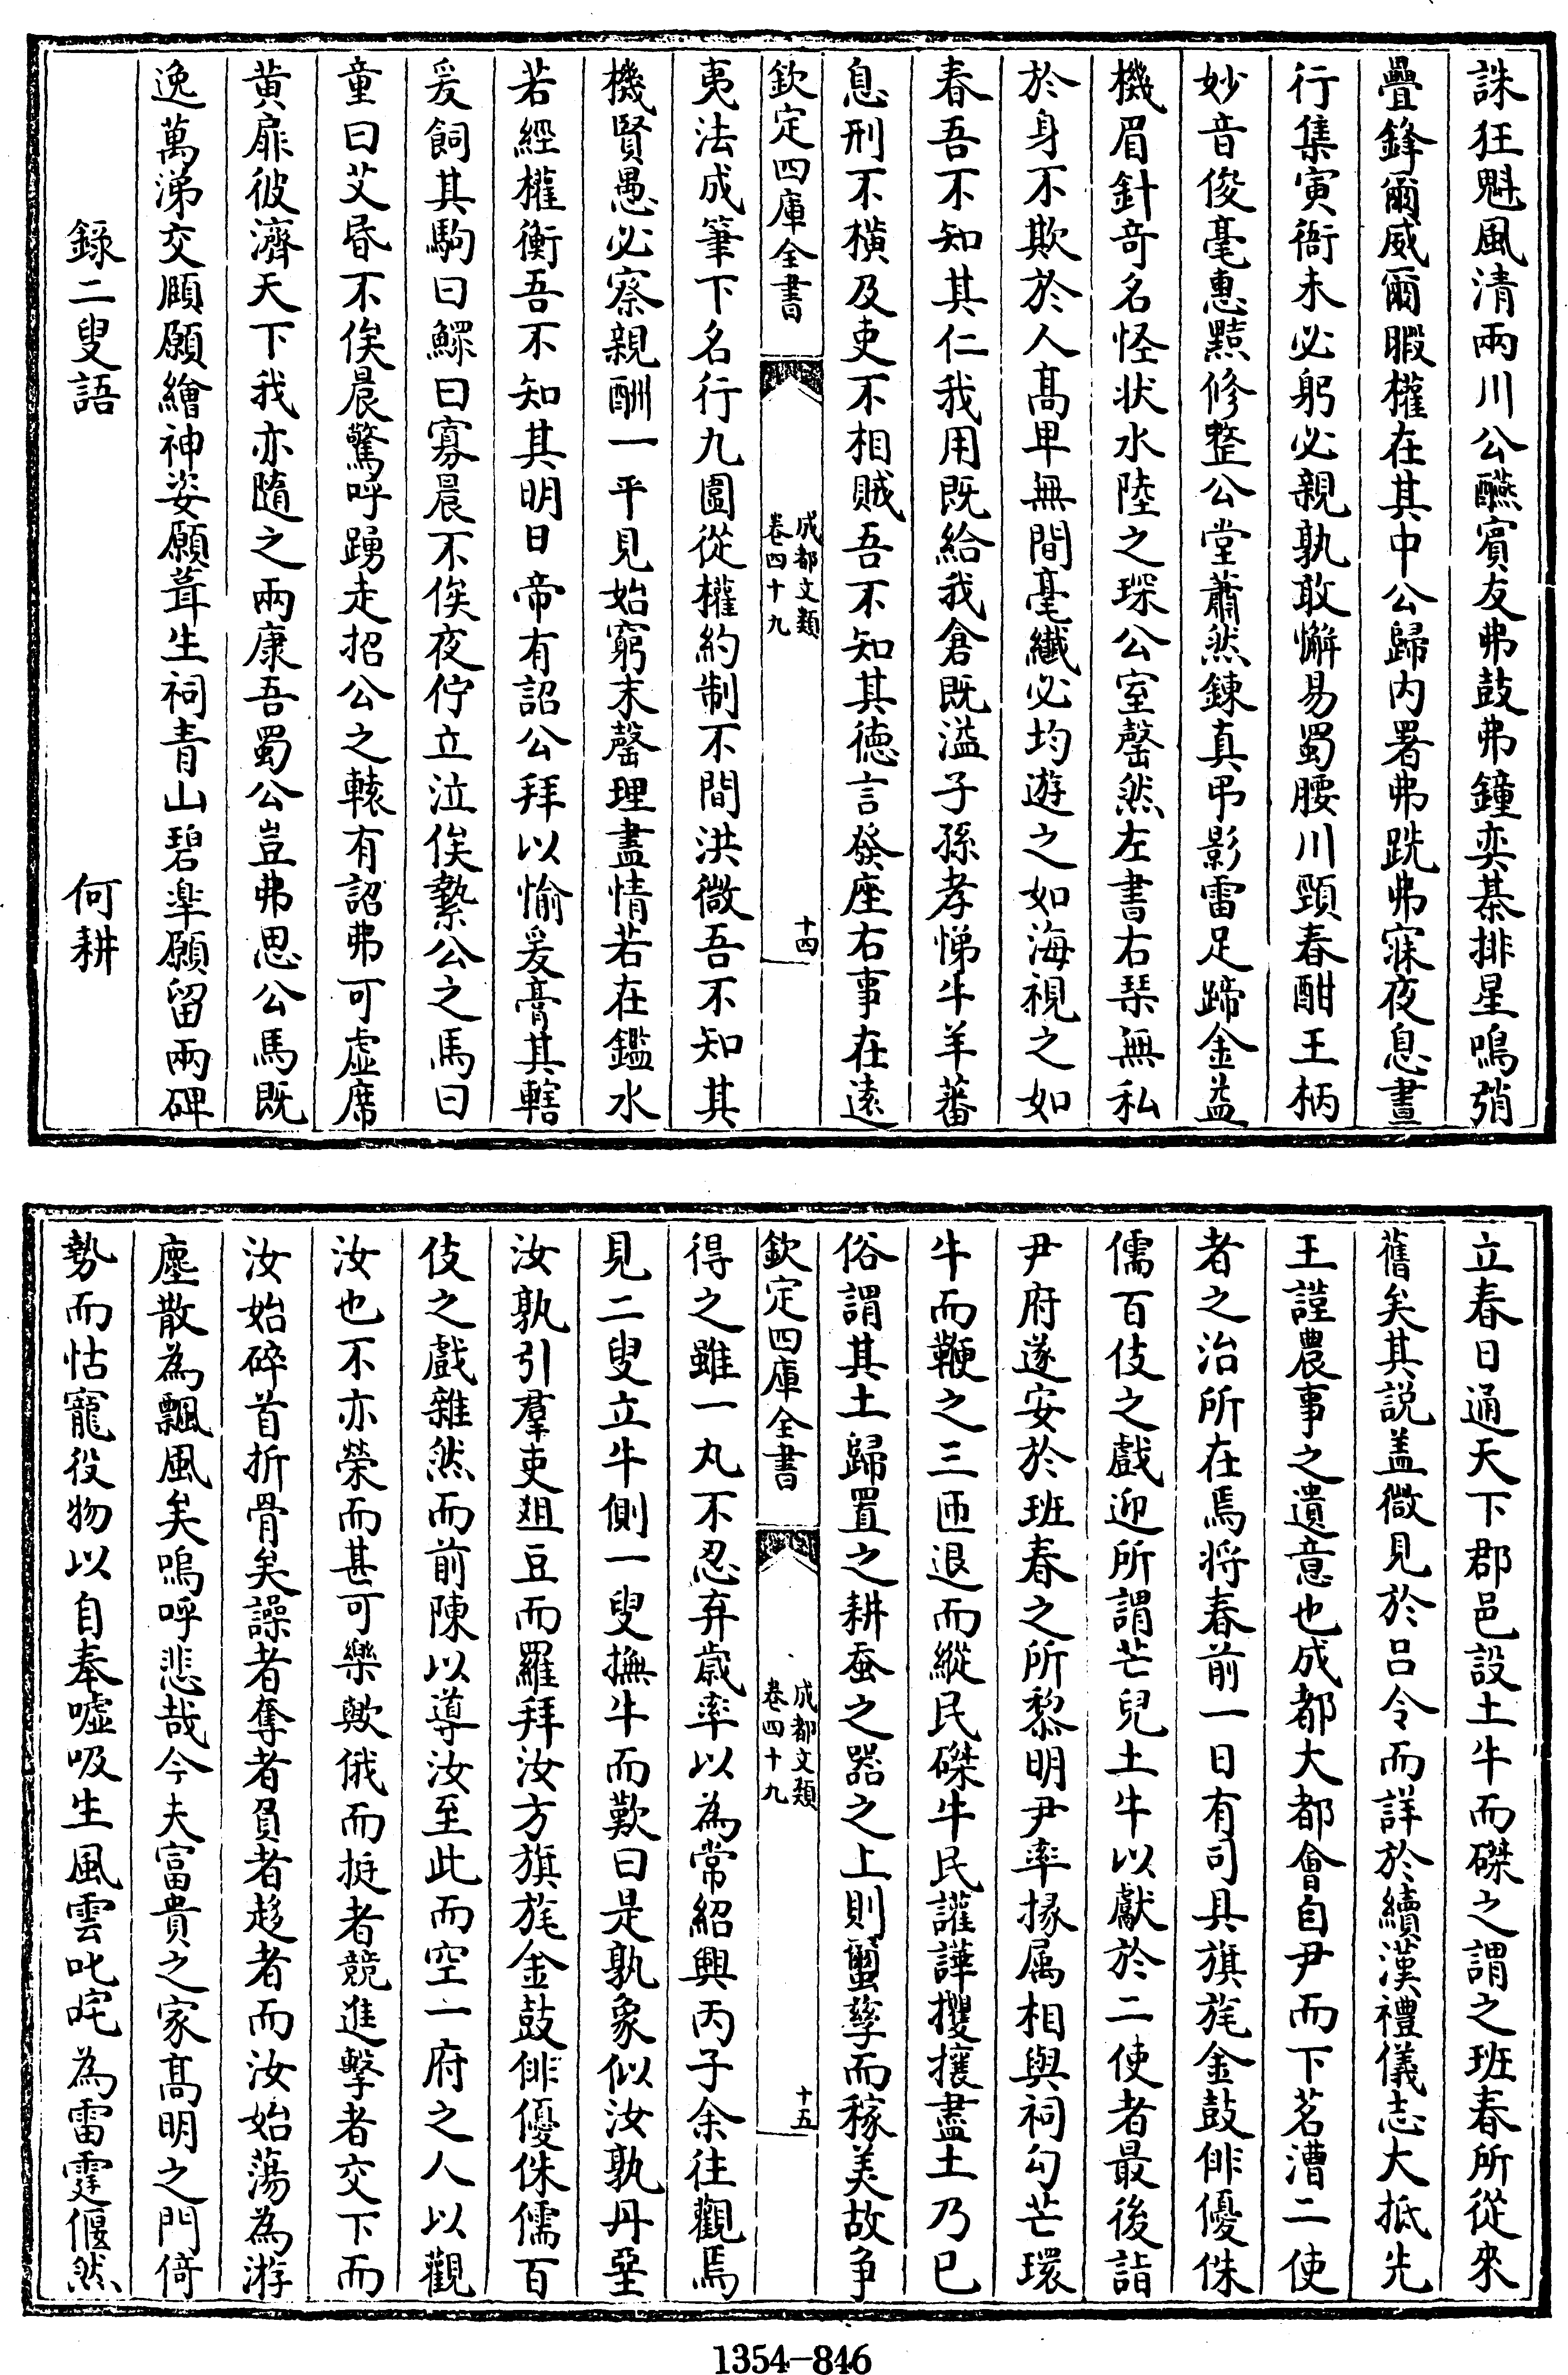 誅狂魁風清兩川公醼賓友弗鼓弗鐘奕棊排星鳴弰
疊鋒爾威爾暇權在其中公歸内署弗跣弗寐夜息晝
行集寅衙未必躬必親孰敢懈易蜀腰川頸春酣王柄
妙音俊毫惠黠修整公堂蕭然鍊真弔影雷足蹄金益
機眉針竒名怪状水陸之琛公室罄然左書右琹無私
於身不欺於人髙卑無間毫纎必均遊之如海視之如
春吾不知其仁我用既給我倉既溢子孫孝悌牛羊蕃
息刑不橫及吏不相賊吾不知其徳言發座右事在遠
欽定四庫全書
成都文類
卷四十九
十四
夷法成筆下名行九圍從權約制不間洪微吾不知其
機賢愚必察親酬一平見始窮末罄理盡情若在鑑水
若經權衡吾不知其明日帝有詔公拜以愉爰膏其轄
爰飼其駒曰鰥曰寡晨不俟夜佇立泣俟縶公之馬曰
童曰艾昏不俟晨驚呼踴走招公之轅有詔弗可虚席
黄扉彼濟天下我亦隨之兩康吾蜀公豈弗思公馬既
逸萬涕交頥願繪神姿願葺生祠青山碧凖願留兩碑
錄二叟語　何耕
立春日通天下郡邑設土牛而磔之謂之班春所從來
舊矣其説盖微見於吕令而詳於續漢禮儀志大抵先
王謹農事之遺意也成都大都會自尹而下茗漕二使
者之治所在焉將春前一日有司具旗旄金鼓俳優侏
儒百伎之戲迎所謂芒兒土牛以獻於二使者最後詣
尹府遂安於班春之所黎明尹率掾属相與祠勾芒環
牛而鞭之三匝退而縱民磔牛民讙譁攫攘盡土乃已
俗謂其土歸置之耕蚕之器之上則蠒孳而稼美故争
欽定四庫全書
成都文類
卷四十九
十五
得之雖一丸不忍弃歲率以為常紹興丙子余往觀焉
見二叟立牛側一叟撫牛而歎曰是孰象似汝孰丹堊
汝孰引羣吏俎豆而羅拜汝方旗旄金鼓俳優侏儒百
伎之戲雜然而前陳以導汝至此而空一府之人以觀
汝也不亦榮而甚可樂歟俄而挺者競進擊者交下而
汝始碎首折骨矣譟者奪者負者趍者而汝始蕩為游
塵散為飄風矣嗚呼悲哉今夫富貴之家髙明之門倚
勢而怙寵役物以自奉噓吸生風雲叱咤為雷霆偃然
1354-846